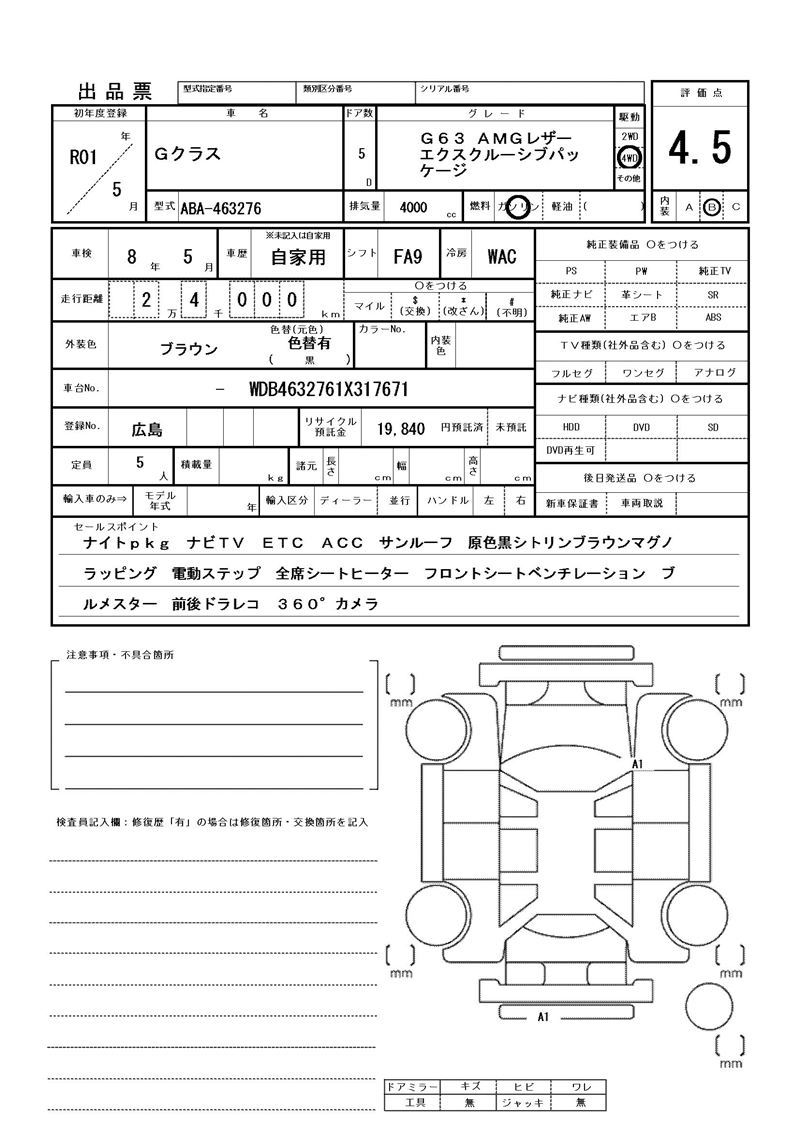 出品票
型式指定番号 類別区分番号 シリアル番号
評価点
初年度登録 車名 ドア数 グレード 駆動
R01 年 5 月
Gクラス
5 D
G63 AMGレザー
エクスクルーシブパッ
ケージ
2WD
4WD
その他
4.5
型式 ABA-463276 排気量 4000 cc 燃料 ガソリン 軽油 ( )
内装 A B C
車検 8 年 5 月 車歴 ※未記入は自家用 自家用 シフト FA9 冷房 WAC
純正装備品 〇をつける
PS PW 純正TV
純正ナビ 革シート SR
純正AW エアB ABS
走行距離 2 万 4 千 0 0 0 km
〇をつける
マイル $ (交換) * (改ざん) # (不明)
外装色 ブラウン 色替(元色) 色替有 ( 黒 ) カラーNo. 内装色
TV種類(社外品含む) 〇をつける
フルセグ ワンセグ アナログ
車台No. - WDB4632761X317671
ナビ種類(社外品含む) 〇をつける
HDD DVD SD
DVD再生可
登録No. 広島 リサイクル預託金 19,840 円預託済 未預託
定員 5 人 積載量 kg 諸元 長さ cm 幅 cm 高さ cm
後日発送品 〇をつける
新車保証書 車両取説
輸入車のみ⇒ モデル年式 年 輸入区分 ディーラー 並行 ハンドル 左 右
セールスポイント
ナイトpkg ナビTV ETC ACC サンルーフ 原色黒シトリンブラウンマグノ
ラッピング 電動ステップ 全席シートヒーター フロントシートベンチレーション ブ
ルメスター 前後ドラレコ 360°カメラ
注意事項・不具合箇所
検査員記入欄:修復歴「有」の場合は修復箇所・交換箇所を記入
mm mm
A1
mm mm
A1
mm
ドアミラー キズ ヒビ ワレ
工具 無 ジャッキ 無